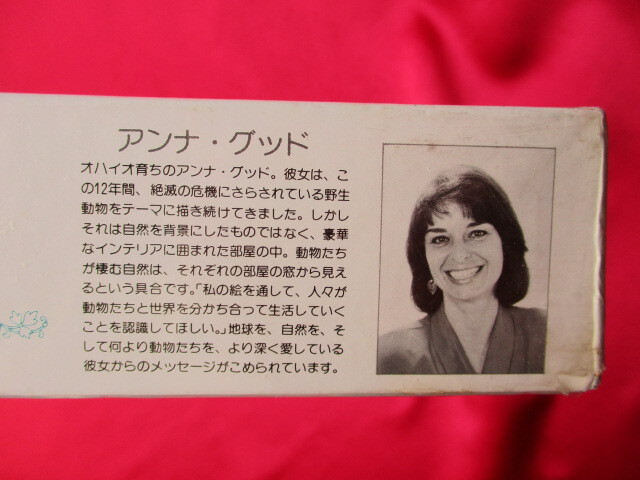 アンナ・グッド
オハイオ育ちのアンナ・グッド。彼女は、こ
の12年間、絶滅の危機にさらされている野生
動物をテーマに描き続けてきました。しかし
それは自然を背景にしたものではなく、豪華
なインテリアに囲まれた部屋の中。動物たち
が棲む自然は、それぞれの部屋の窓から見え
るという具合です。「私の絵を通して、人々が
動物たちと世界を分かち合って生活していく
ことを認識してほしい。」地球を、自然を、そ
して何より動物たちを、より深く愛している
彼女からのメッセージがこめられています。